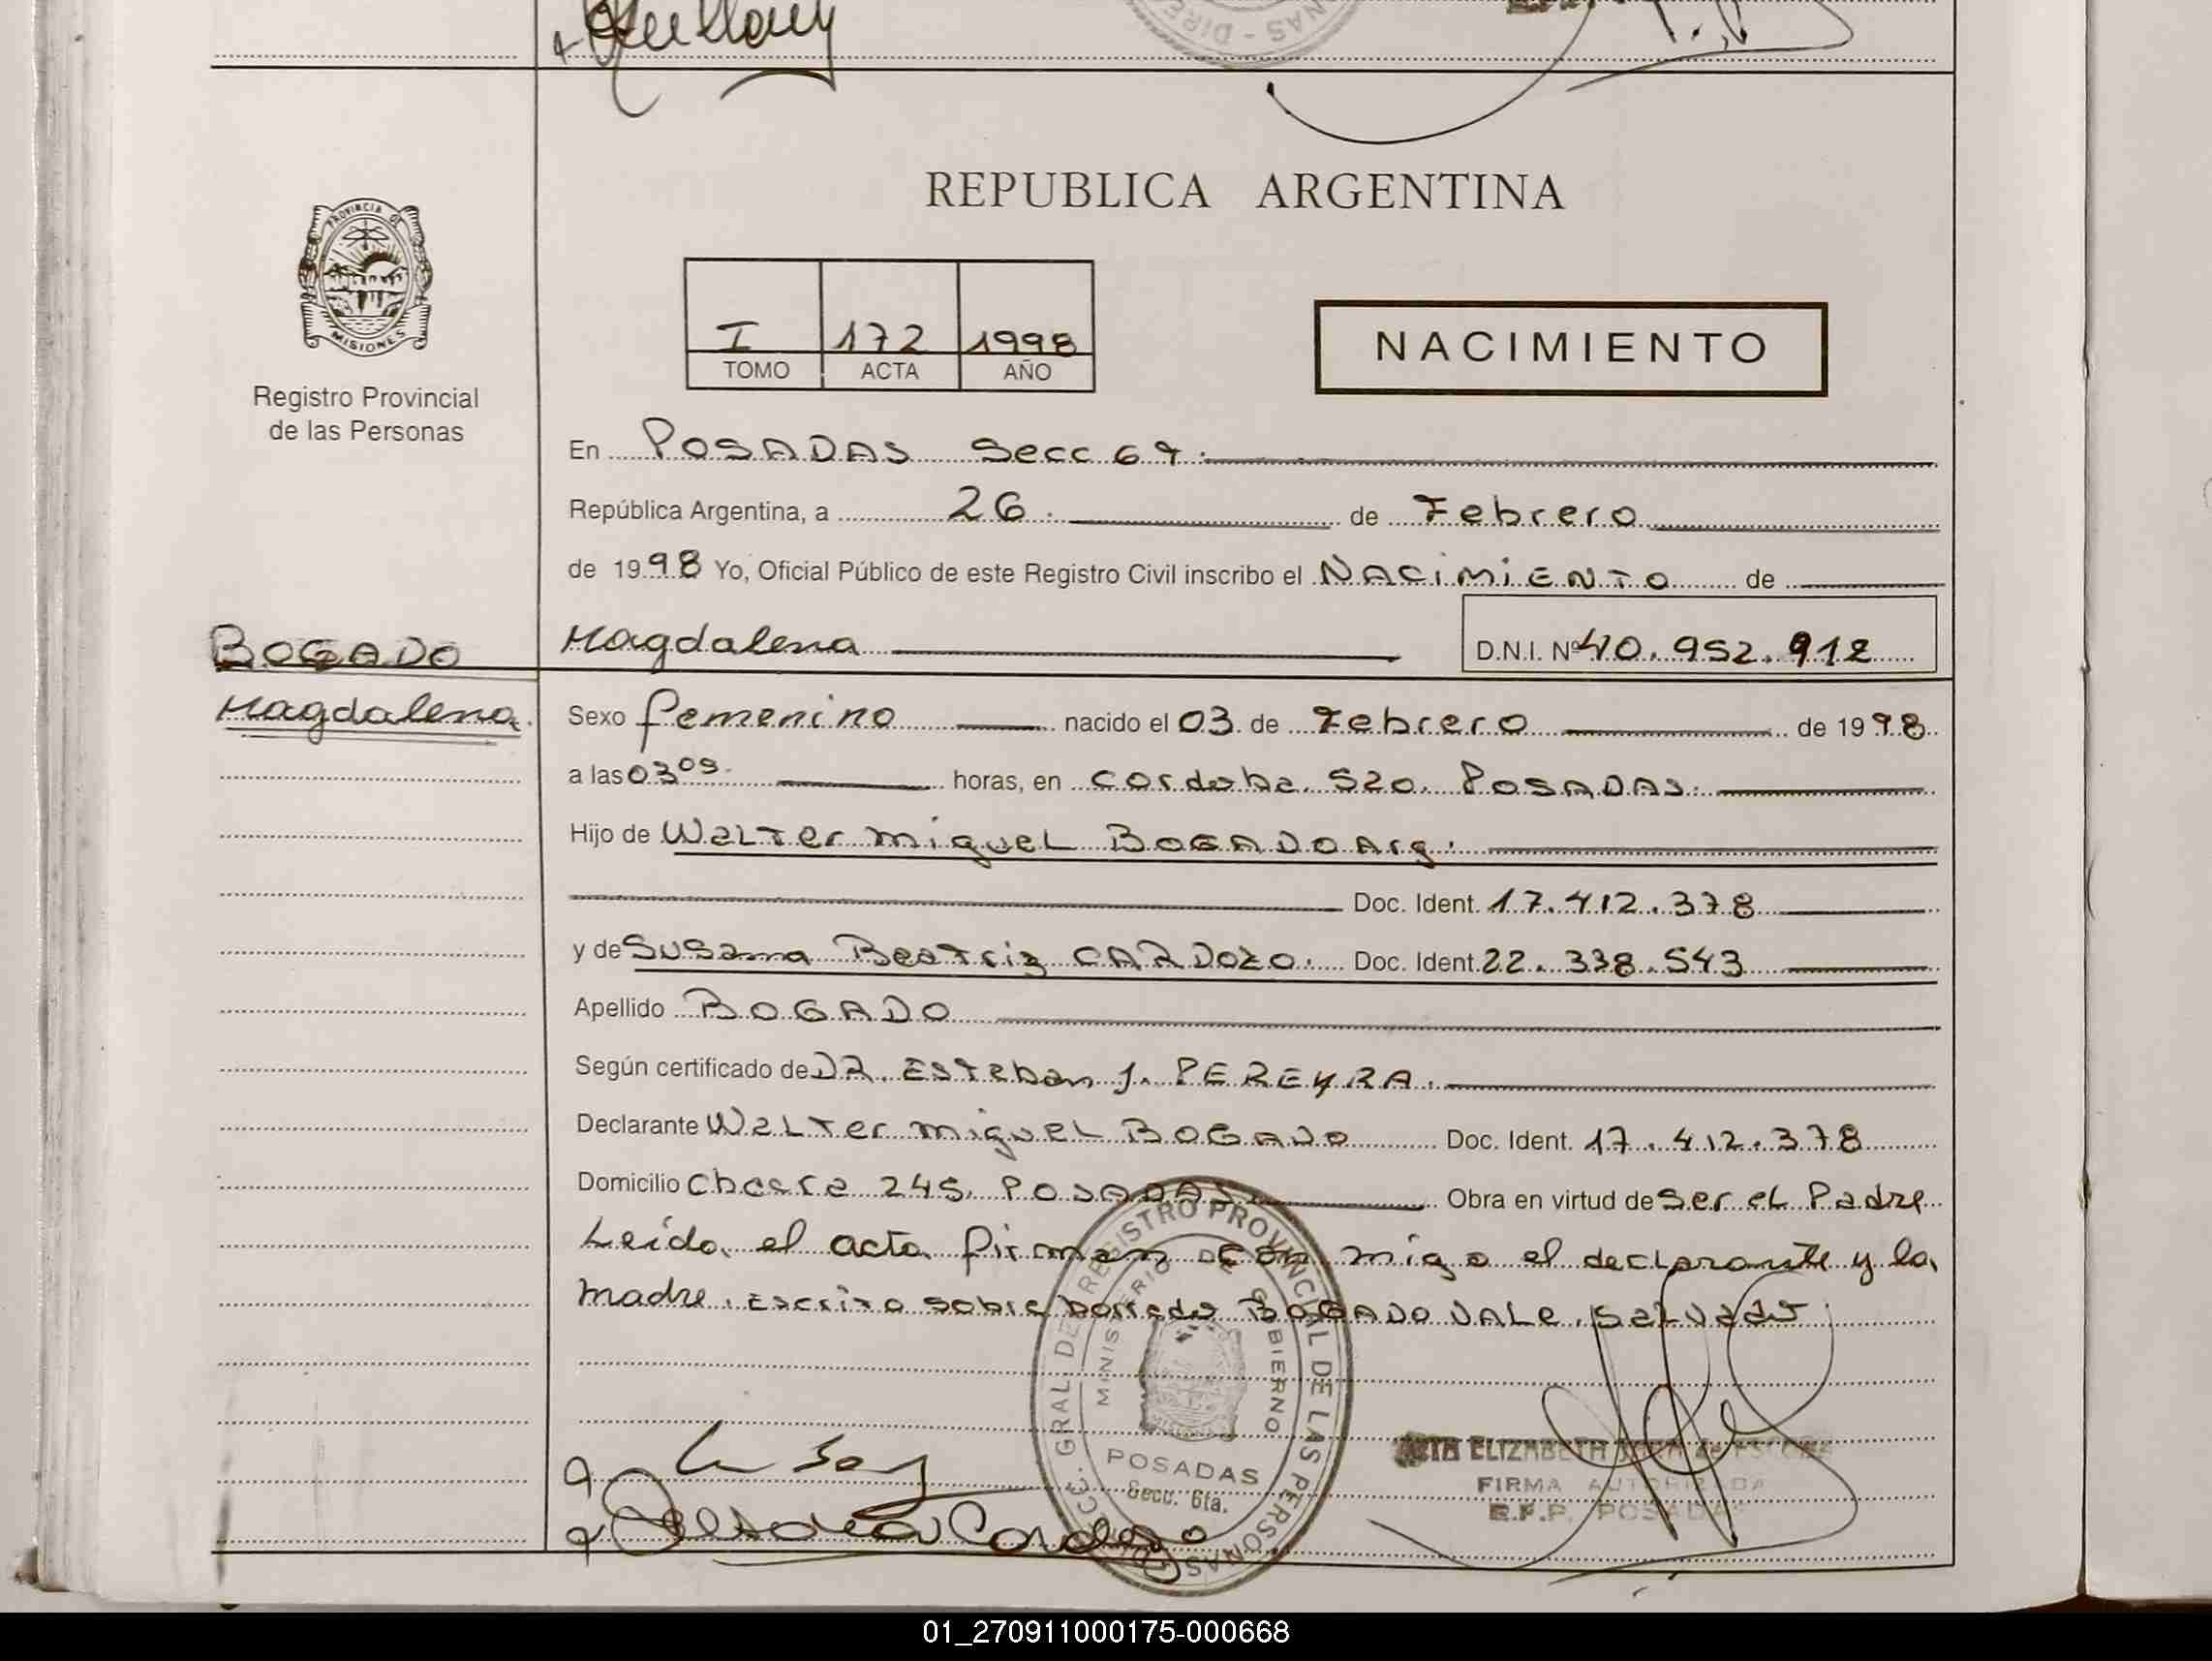 REPUBLICA ARGENTINA
PROVINCIA DE
MISIONES
Registro Provincial
de las Personas
I 172 1998
TOMO ACTA AÑO
NACIMIENTO
En POSADAS Secc 6ª.
República Argentina, a 26. de Febrero
de 1998 Yo, Oficial Público de este Registro Civil inscribo el NACIMIENTO de
BOGADO
Magdalena
Magdalena D.N.I. Nº 40.952.912
Sexo femenino nacido el 03 de Febrero de 1998
a las 03 09 horas, en Cordoba 520. POSADAS.
Hijo de Walter Miguel BOGADO Arg.
Doc. Ident. 17.412.378
y de Susana Beatriz CARDOZO. Doc. Ident. 22.338.543
Apellido BOGADO
Según certificado de DR. Esteban J. PEREYRA.
Declarante Walter Miguel BOGADO Doc. Ident. 17.412.378
Domicilio Chacra 245. POSADAS. Obra en virtud de Ser el Padre
Leída el acta firman con migo el declarante y la
madre. Escrito sobre borrado BOGADO VALE. Salvado.
REGISTRO PROVINCIAL DE LAS PERSONAS
MINISTERIO DE GOBIERNO
POSADAS
Secc. 6ta.
ELIZABETH
FIRMA AUTORIZADA
R.F.P. POSADAS
01_270911000175-000668